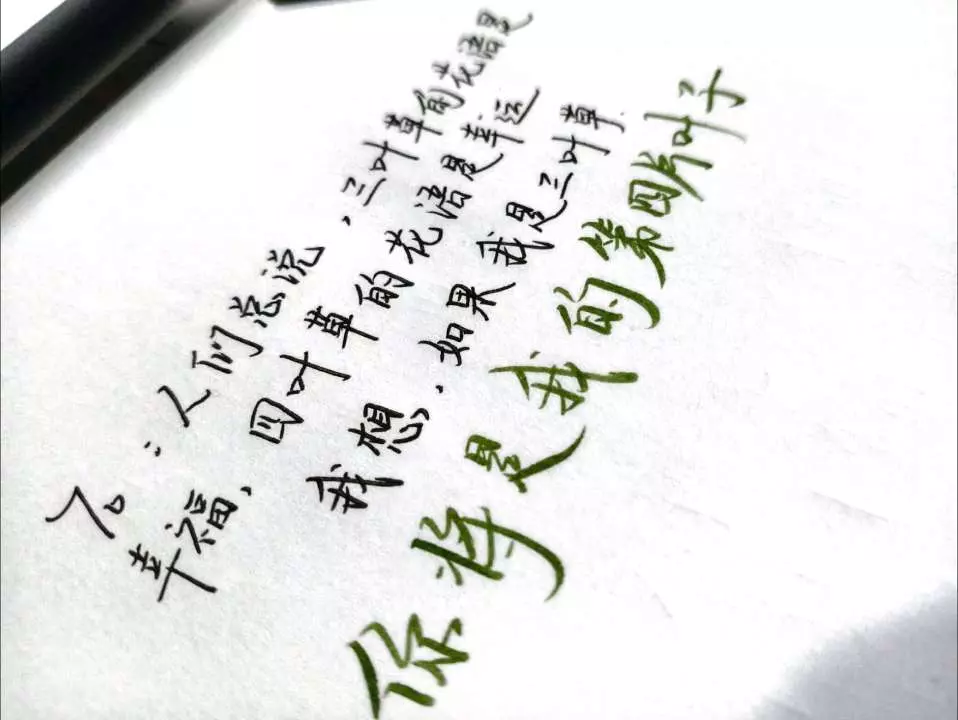 人们总说，三叶草的花语是
幸福，四叶草的花语是幸运
我想，如果我是三叶草
你将是我的第四片叶子